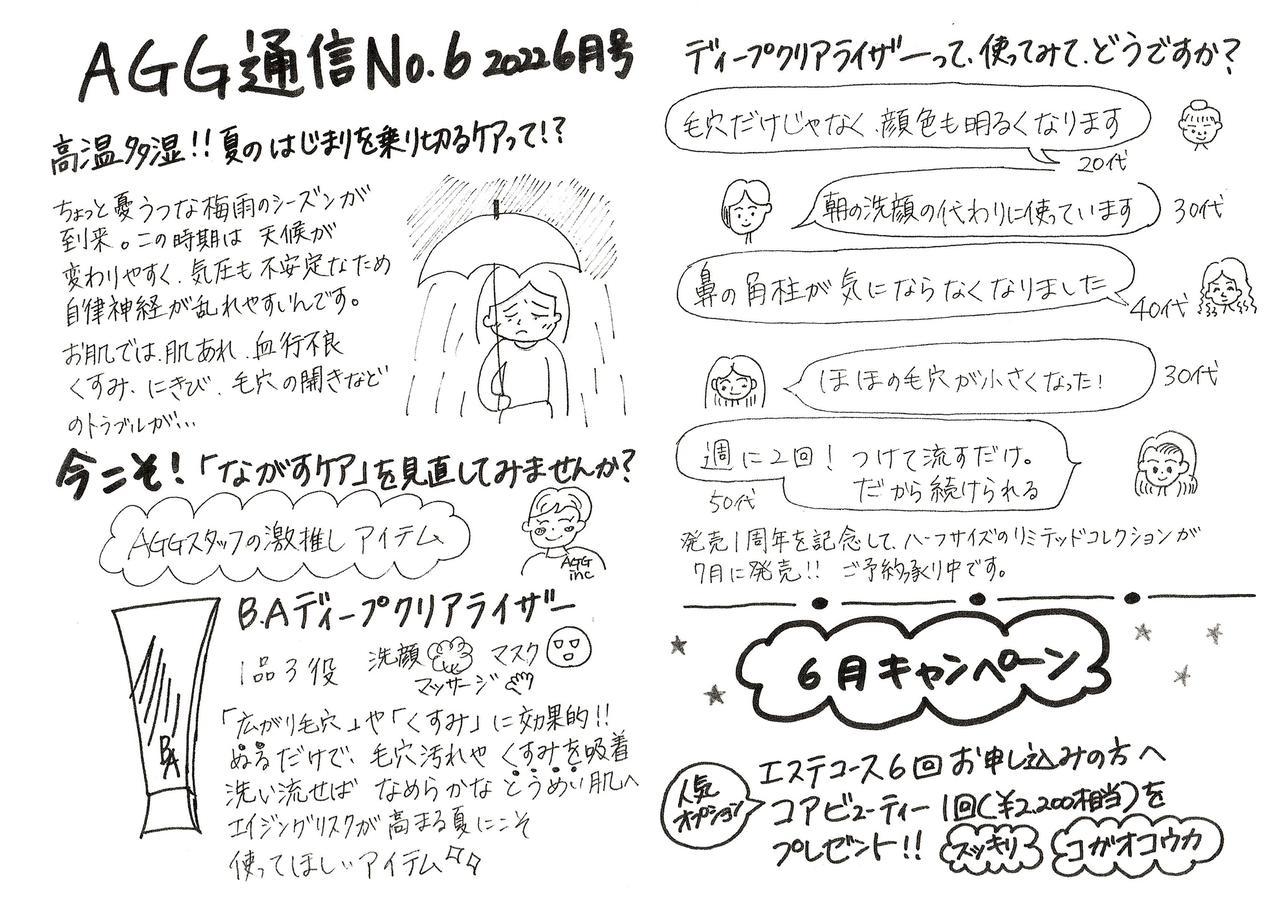 AGG通信No.6 2022 6月号
高温多湿!!夏のはじまりを乗り切るケアって!?
ちょっと憂うつな梅雨のシーズンが
到来。この時期は 天候が
変わりやすく、気圧も不安定なため
自律神経が乱れやすいんです。
お肌では、肌あれ、血行不良
くすみ、にきび、毛穴の開きなど
のトラブルが…
今こそ!「ながすケア」を見直してみませんか?
AGGスタッフの激推しアイテム
AGG
inc
B.Aディープクリアライザー
1品3役 洗顔 マスク
マッサージ
「広がり毛穴」や「くすみ」に効果的!!
ぬるだけで、毛穴汚れや くすみを吸着
洗い流せば なめらかな とうめい肌へ
エイジングリスクが高まる夏にこそ
使ってほしいアイテム
BA
ディープクリアライザーって、使ってみて、どうですか?
毛穴だけじゃなく、顔色も明るくなります
20代
朝の洗顔の代わりに使っています
30代
鼻の角柱が気にならなくなりました
40代
ほほの毛穴が小さくなった!
30代
週に2回! つけて流すだけ。
だから続けられる
50代
発売1周年を記念して、ハーフサイズのリミテッドコレクションが
7月に発売!! ご予約承り中です。
6月キャンペーン
エステコース6回お申し込みの方へ
人気
オプション
コアビューティー1回(¥2,200相当)を
プレゼント!! スッキリ コガオコウカ